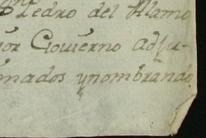 Pedro del Alamo
or Govierno adju
mados ynombrando